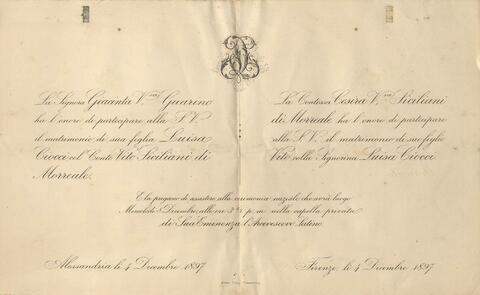 La Signora Giacinta V.va Guarino
ha l'onore di partecipare alla S. V.
il matrimonio di sua figlia Luisa
Ciocci col Conte Vito Siciliani di
Morreale.
La Contessa Cesira V.va Siciliani
di Morreale ha l'onore di partecipare
alla S. V. il matrimonio di suo figlio
Vito colla Signorina Luisa Ciocci.
E la pregano di assistere alla cerimonia nuziale che avrà luogo
Mercoledì Dicembre, alle ore 3 p. m. nella cappella privata
di Sua Eminenza l'Arcivescovo Latino.
Alessandria li 4 Dicembre 1897
Firenze, li 4 Dicembre 1897